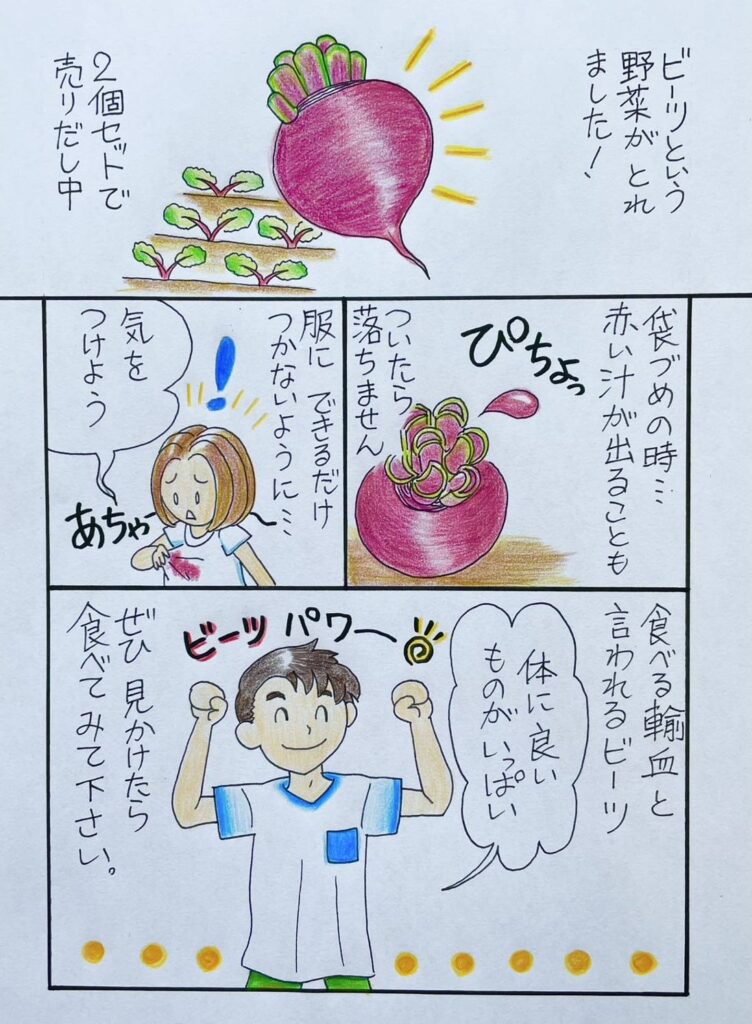 ビーツという
野菜が とれ
ました!
2個セットで
売りだし中
袋づめの時…
赤い汁が出ることも
ぴちょっ
ついたら
落ちません
服に できるだけ
つかないように…
!
気を
つけよう
あちゃー
食べる輸血と
言われるビーツ
体に良い
ものがいっぱい
ビーツ パワー
ぜひ 見かけたら
食べてみて下さい。